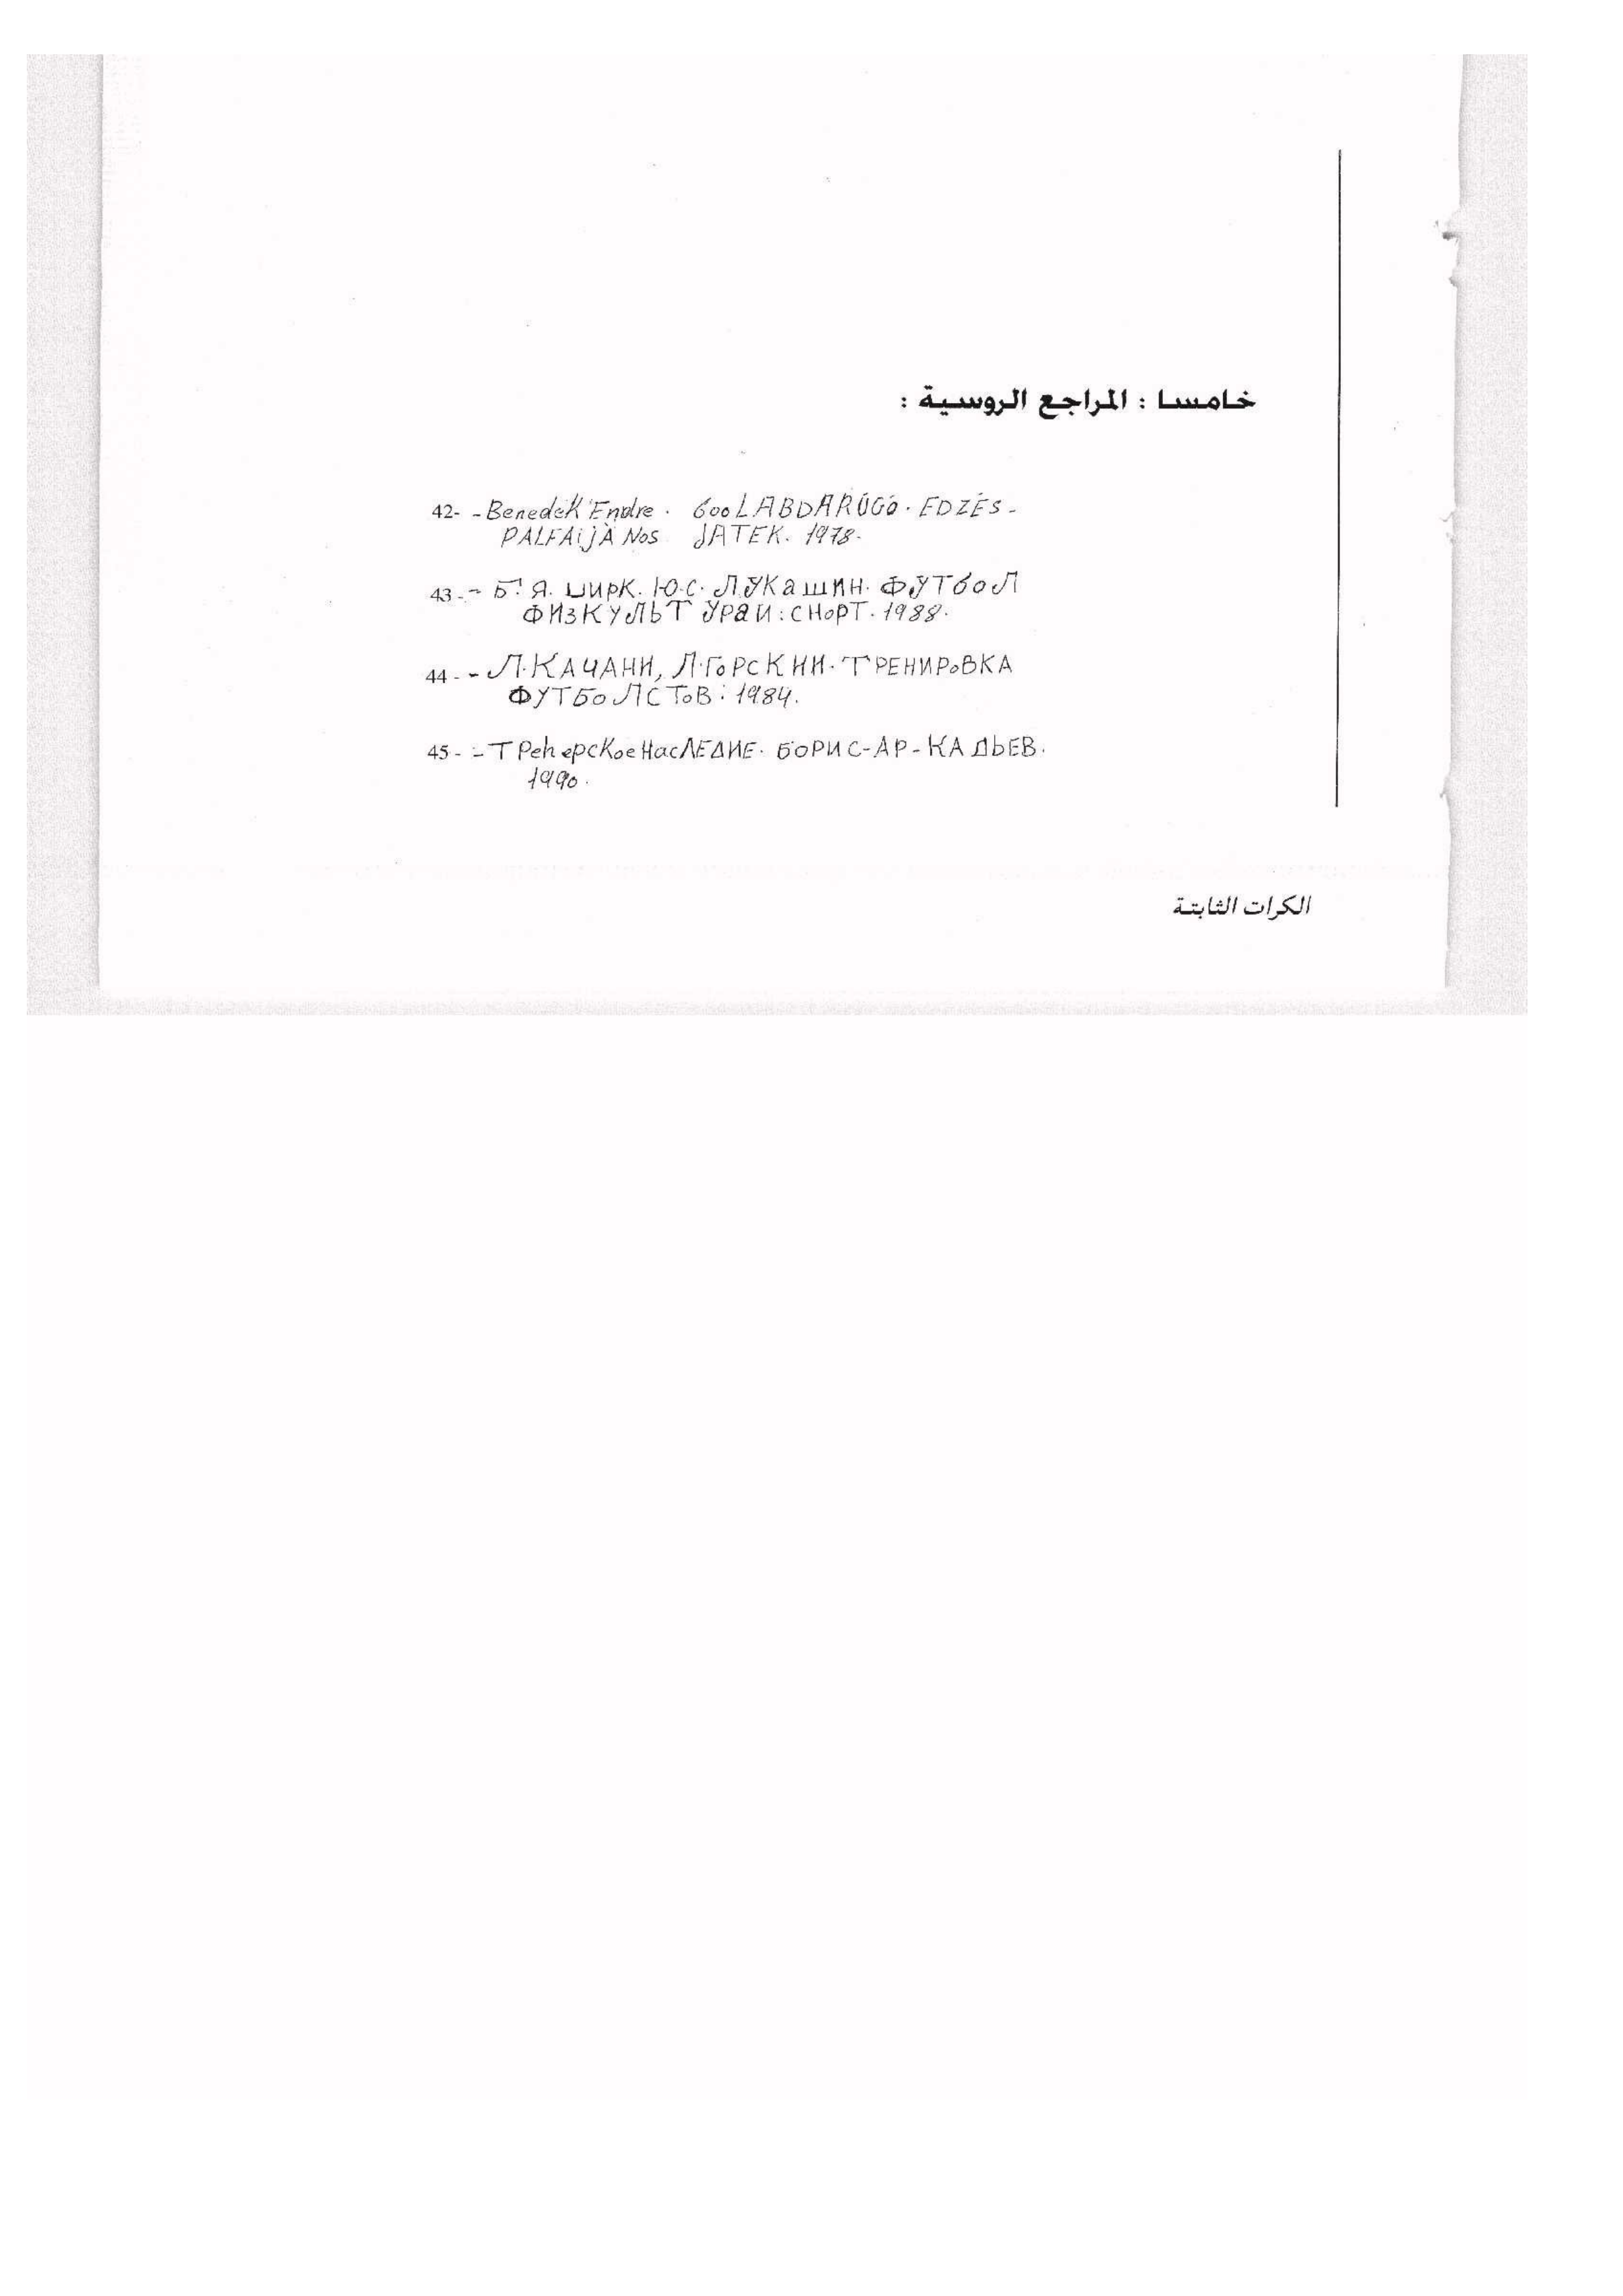 خامسا : المراجع الروسية :
42- - Benedek Endre . 600 LABDARÚGÓ . EDZÉS -
PALFAIJÀ NOS JATEK. 1978.
43 - - Б. Я. ЦИРК. Ю.С. ЛУКаШИН. ФУТбОЛ
ФИЗКУЛЬТ УРаИ : СНОРТ. 1988.
44 - - Л. КАЧАНИ, Л. ГОРСКИЙ. ТРЕНИРОВКА
ФУТБОЛСТОВ : 1984.
45 - - ТРенерскоеНасЛЕДИЕ. БОРИС-АР-КАДЬЕВ.
1990.
الكرات الثابتة